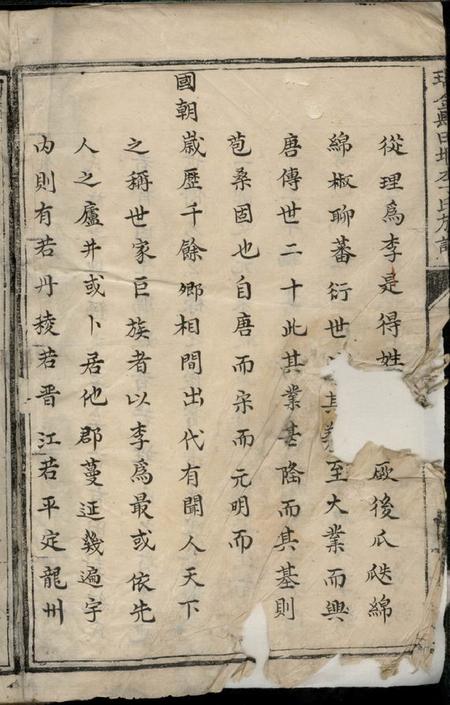 從理爲李是得姓厥後瓜瓞綿
綿椒聊蕃衍世其至大業而興
唐傳世二十此其業甚隆而其基則
苞桑固也自唐而宋而元明而
國朝歲歷千餘鄉相間出代有聞人天下
之稱世家巨族者以李爲最或依先
人之廬井或卜居他郡蔓延幾遍宇
內則有若丹稜若晋江若平定龍州